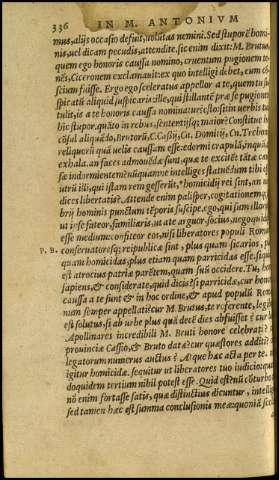 336 IN M. ANTONIVM
mus, aliis occasio defuit, volūtas nemini. Sed stuporē homi-
nis, vel dicam pecudis, attendite. sic enim dixit: M. Brutus,
quem ego honoris caussa nomino, cruentum pugionem te-
nēs, Ciceronem exclamauit: ex quo intelligi debet, eum cō-
scium fuisse. Ergo ego sceleratus appellor a te, quem tu su-
spicatū aliquid suspicaris: ille, qui stillantē prae se pugionem
tulit, is a te honoris caussa nominatur: sit in verbis tuis
hic stupor. quāto in rebus, sententiisq; maior? Constitue hoc
cōsul aliquādo, Brutorū, C. Cassij, Cn. Domitij, Cn. Trebonij
reliquorū quā velis caussam esse: edormi crapulā, inquā, &
exhala. an faces admouēdae sunt, quae te excitēt tātae caus-
sae indormientem? nūquamne intelliges statuēdum tibi esse,
utrū illi, qui istam rem gesserūt, homicidae rei sint, an
dices libertatis? Attende enim palisper, cogitationemq;
brij hominis punctum tēporis suscipe. ego, qui sum illorum,
ut ipse fateor, familiaris, ut a te arguor, socius, nego quidquā
esse medium: confiteor eos, nisi liberatores populi Romani,
P. B. conseruatoresq; reipublicae sint, plus quam sicarios, plus
quam homicidas, plus etiam quam parricidas esse. siquidē
est atrocius patriae parētem, quam suū occidere. Tu, homo
sapiens, & considerate, quid dicis? si parricidae, cur honoris
caussa a te sunt & in hoc ordine, & apud populū Romanū
nam semper appellati? cur M. Brutus, te referente, legibus
est solutus, si ab urbe plus quā decē dies abfuisset? cur ludi
Apollinares incredibili M. Bruti honore celebrati?
prouinciae Cassio, & Bruto datae? cur quaestores additi?
legatorum numerus auctus? Atque haec acta per te.
igitur homicidae. sequitur ut liberatores tuo iudicio:
doquidem tertium nihil potest esse. Quid est? nū cōturbo
nō enim fortasse satis, quae distinctius dicuntur, intelligis
sed tamen haec est summa conclusionis meae: quoniā